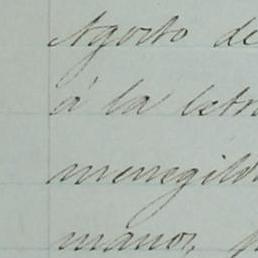 Agosto de
á la letra
menegild
manos, p